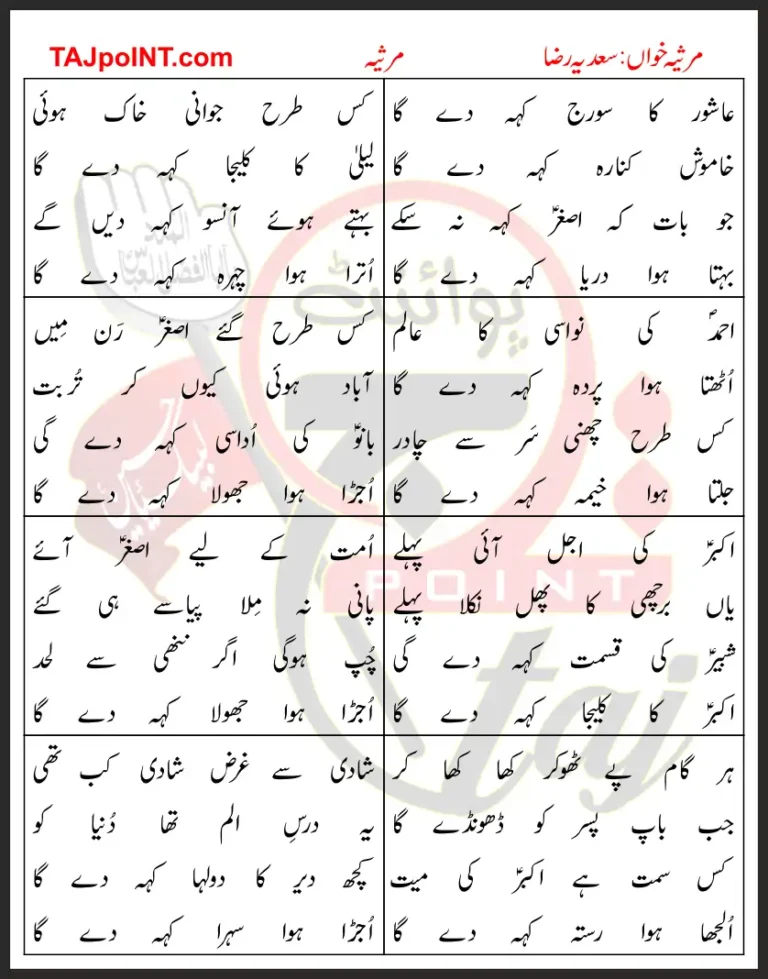 مرثیہ خواں: سعدیہ رضا
مرثیہ
TAJpoINT.com
عاشور کا سورج کہہ دے گا
خاموش کنارہ کہہ دے گا
جو بات کہ اصغرؑ کہہ نہ سکے
بہتا ہوا دریا کہہ دے گا
کس طرح جوانی خاک ہوئی
لیلیٰ کا کلیجا کہہ دے گا
بہتے ہوئے آنسو کہہ دیں گے
اُترا ہوا چہرہ کہہ دے گا
احمدؐ کی نواسی کا عالم
اُٹھتا ہوا پردہ کہہ دے گا
کس طرح چھنی سَر سے چادر
جلتا ہوا خیمہ کہہ دے گا
کس طرح گئے اصغرؑ رَن مِیں
آباد ہوئی کیوں کر تُربت
بانوؑ کی اُداسی کہہ دے گی
اُجڑا ہوا جھولا کہہ دے گا
اکبرؑ کی اجل آئی پہلے
یاں برچھی کا پھل نکلا پہلے
شبیرؑ کی قسمت کہہ دے گی
اکبرؑ کا کلیجا کہہ دے گا
اُمت کے لیے اصغرؑ آئے
پانی نہ مِلا پیاسے ہی گئے
چُپ ہوگی اگر ننھی سے لحد
اُجڑا ہوا جھولا کہہ دے گا
ہر گام پے ٹھوکر کھا کھا کر
جب باپ پسر کو ڈھونڈے گا
کس سمت ہے اکبرؑ کی میت
اُلجھا ہوا رستہ کہہ دے گا
شادی سے غرض شادی کب تھی
یہ درسِ الم تھا دُنیا کو
کچھ دیر کا دولہا کہہ دے گا
اُجڑا ہوا سہرا کہہ دے گا
پوائنٹ
POINT
taj